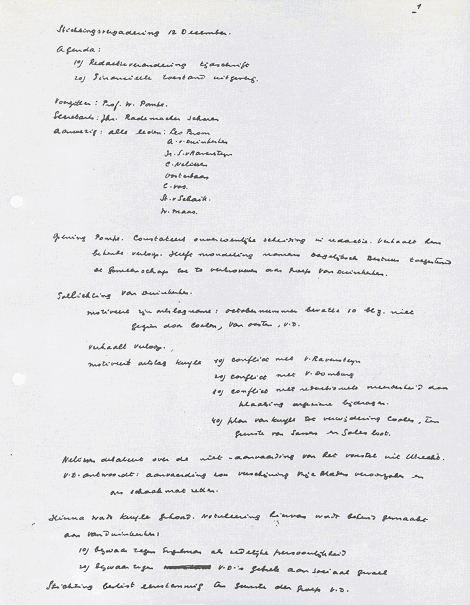 1
Stichtingsvergadering 12 December.
Agenda:
1o) Redactieverandering tijdschrift
2o) Financieele toestand uitgeverij.
Voorzitter: Prof. W. Pompe.
Secretaris: Jhr. Rademacher Schorer
Aanwezig: alle leden: Leo
A. v. Duinkerken
Jr. S. v Ravesteyn
C. Nelissen
Oosterbaan
C. Vos.
St. v Schaik.
W. Maas.
Opening Pompe. Constateert onverzoenlijke scheiding in redactie. Verhaalt hem
bekende verloop. Heeft mondeling namens Dagelijksch Bestuur toegestemd
de Gemeenschap toe te vertrouwen aan groep Van Duinkerken.
Toelichting Van Duinkerken.
motiveert zijn ontslagname: octobernummer bevatte 10 blz. niet
gezien door Coolen, Van Oosten, V.D.
Verhaalt verloop.
motiveert ontslag Kuyle 1o) conflict met V. Ravesteyn
2o) conflict met V. Domburg
3o) conflict met redactioneele meerderheid door
plaatsing bijdragen.
4o) plan van Kuyle tot verwijdering Coolen, ten
gunste van en
Nelissen debatteert over de niet-aanvaarding van het voorstel uit Utrecht.
V.D. antwoordt: aanvaarding zou verschijning Vrije Bladen veroorzaken en
ons schaakmat zetten.
Hierna wordt Kuyle gehoord. Notuleering hiervan wordt bekend gemaakt
aan Van Duinkerken:
1o) bezwaar tegen Engelman als zedelijke persoonlijkheid
2o) bezwaar tegen V.D.'s gebrek aan sociaal gevoel
Stichting beslist eenstemmig ten gunste der groep V.D.